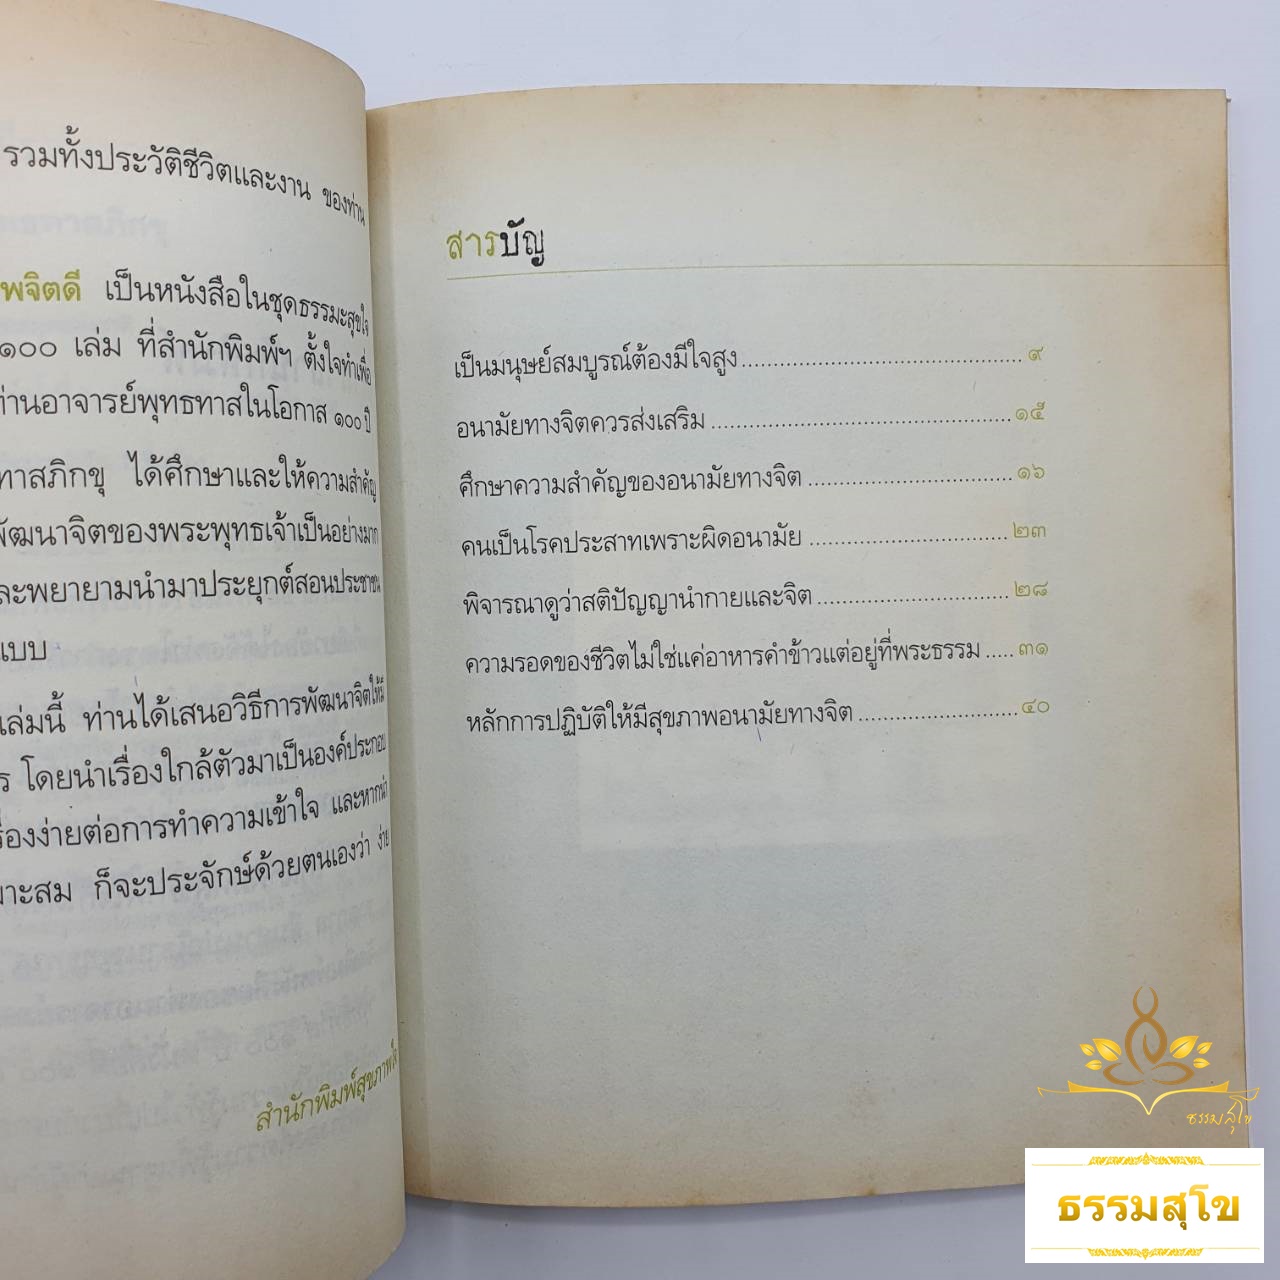 รวมทั้งประวัติชีวิตและงาน ของท่าน
พจิตดี เป็นหนังสือในชุดธรรมะสุขใจ
๑๐๐ เล่ม ที่สำนักพิมพ์ฯ ตั้งใจทำเพื่อ
ท่านอาจารย์พุทธทาสในโอกาส ๑๐๐ ปี
ทาสภิกขุ ได้ศึกษาและให้ความสำคัญ
พัฒนาจิตของพระพุทธเจ้าเป็นอย่างมาก
ละพยายามนำมาประยุกต์สอนประชาชน
แบบ
เล่มนี้ ท่านได้เสนอวิธีการพัฒนาจิตให้มี
ร โดยนำเรื่องใกล้ตัวมาเป็นองค์ประกอบ
รื่องง่ายต่อการทำความเข้าใจ และหากนำ
มาะสม ก็จะประจักษ์ด้วยตนเองว่า ง่าย
สำนักพิมพ์สุขภาพใจ
สารบัญ
เป็นมนุษย์สมบูรณ์ต้องมีใจสูง ๙
อนามัยทางจิตควรส่งเสริม ๑๕
ศึกษาความสำคัญของอนามัยทางจิต ๑๖
คนเป็นโรคประสาทเพราะผิดอนามัย ๒๓
พิจารณาดูว่าสติปัญญานำกายและจิต ๒๘
ความรอดของชีวิตไม่ใช่แค่อาหารคำข้าวแต่อยู่ที่พระธรรม ๓๑
หลักการปฏิบัติให้มีสุขภาพอนามัยทางจิต ๔๐
ธรรมสุโข
ธรรมสุโข